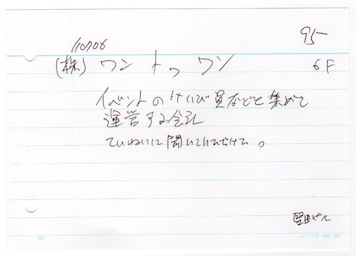 110706
95-
(株) ワントゥワン
6F
イベントのけいび員などを集めて
運営する会社
ていねいに聞いていただけた。
堅田ビル